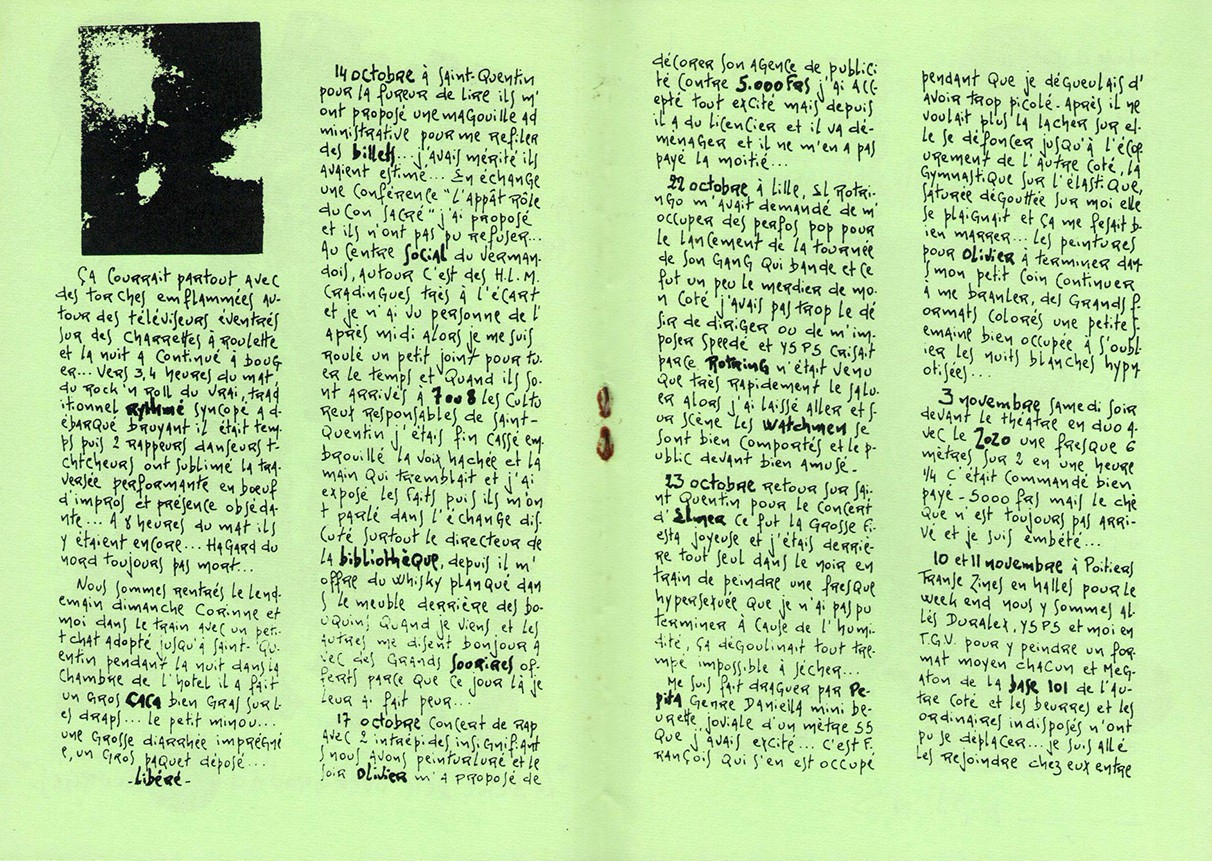 ça courrait partout avec
des torches emflammées au-
tour des téléviseurs éventrés
sur des charrettes à roulette
et la nuit a continué à boug
er... vers 3,4 heures du mat,
du rock'n roll du vrai, trad
itionnel rythmé syncopé a d-
ébarqué bruyant il était tem
ps puis 2 rappeurs danseurs t-
chtcheurs ont sublimé la tra-
versée performante en boeuf
d'impros et présence obséda-
nte... A 8 heures du mat ils
y étaient encore... Hagard du
nord toujours pas mort...
Nous sommes rentrés le lend-
emain dimanche Corinne et
moi dans le train avec un peti-
t chat adopté jusqu'à Saint-Qu-
entin, pendant la nuit dans la
chambre de l'hotel il a fait
un gros CACA bien gras sur l-
es draps... le petit minou...
une grosse diarrhée imprégné
e, un gros paquet déposé...
-libéré-
14 octobre à Saint-Quentin
pour la fureur de lire ils m'
ont proposé une magouille ad
ministrative pour me refiler
des billets... j'avais mérité ils
avaient estimé... En échange
une conférence "l'appât rôle
du con sacré" j'ai proposé
et ils n'ont pas pu refuser...
Au centre social du Verman-
dois, autour c'est des H.L.M.
cradingues très à l'écart
et je n'ai vu personne de l'
après midi alors je me suis
roulé un petit joint pour tu-
er le temps et quand ils so-
nt arrivés à 7 ou 8 les cultu
reux responsables de Saint-
Quentin j'étais fin cassé em-
brouillé la voix hachée et la
main qui tremblait et j'ai
exposé les faits puis ils m'on
t parlé dans l'échange dis-
cuté surtout le directeur de
la bibliothèque, depuis il m'
offre du whisky planqué dan
s le meuble derrière des bo-
uquins quand je viens et les
autres me disent bonjour a
vec des grands sourires of-
ferts parce que ce jour là je
leur ai fait peur...
17 octobre concert de rap
avec 2 intrépides insignifiant
s nous avons peinturluré et le
soir Olivier m'a proposé de
décorer son agence de publici
té contre 5.000 Frs j'ai acc-
epté tout excité mais depuis
il a du licencier et il va dé-
ménager et il ne m'en a pas
payé la moitié...
22 octobre à Lille, El Rotri-
ngo m'avait demandé de m'
occuper des perfos pop pour
le lancement de la tournée
de son gang qui bande et ce
fut un peu le merdier de mo-
n coté j'avais pas trop le dé
sir de diriger ou de m'im-
poser speedé et Y5P5 crisait
parce Rotring n'était venu
que très rapidement le salu-
er alors j'ai laissé aller et s-
ur scène les Watchmen se
sont bien comportés et le p-
ublic devant bien amusé.-
23 octobre retour sur Sai-
nt Quentin pour le concert
d'Elmer ce fut la grosse fi-
esta joyeuse et j'étais derriè-
re tout seul dans le noir en
train de peindre une fresque
hypersexuée que je n'ai pas pu
terminer à cause de l'humi-
dité, ça dégoulinait tout tre-
mpé impossible à sécher...
Me suis fait draguer par Pe-
pita genre Daniella mini be-
urette joviale d'un mètre 55
que j'avais excité... c'est F-
rançois qui s'en est occupé
pendant que je dégueulais d'
avoir trop picolé. Après il ne
voulait plus la lacher sur el-
le se défoncer jusqu'à l'écoe
urement de l'autre coté, la
gymnastique sur l'élastique,
saturée dégouttée sur moi elle
se plaignait et ça me fesait b-
ien marrer... les peintures
pour Olivier à terminer dan
s mon petit coin continuer
à me branler, des grands f-
ormats colorés une petite s-
emaine bien occupée à s'oubl
ier les nuits blanches hypn
otisées...
3 novembre samedi soir
devant le théatre en duo a-
vec le Zozo une fresque 6
mètres sur 2 en une heure
1/4 c'était commandé bien
payé - 5000 frs mais le chè
que n'est toujours pas arri-
vé et je suis embêté...
10 et 11 novembre à Poitiers
Transe Zines en halles pour le
week end nous y sommes al-
lés Duralex, Y5P5 et moi en
T.G.V. pour y peindre un for-
mat moyen chacun et Még-
aton de la base 101 de l'au-
tre coté et les beurres et les
ordinaires indisposés n'ont
pu se déplacer... je suis allé
les rejoindre chez eux entre